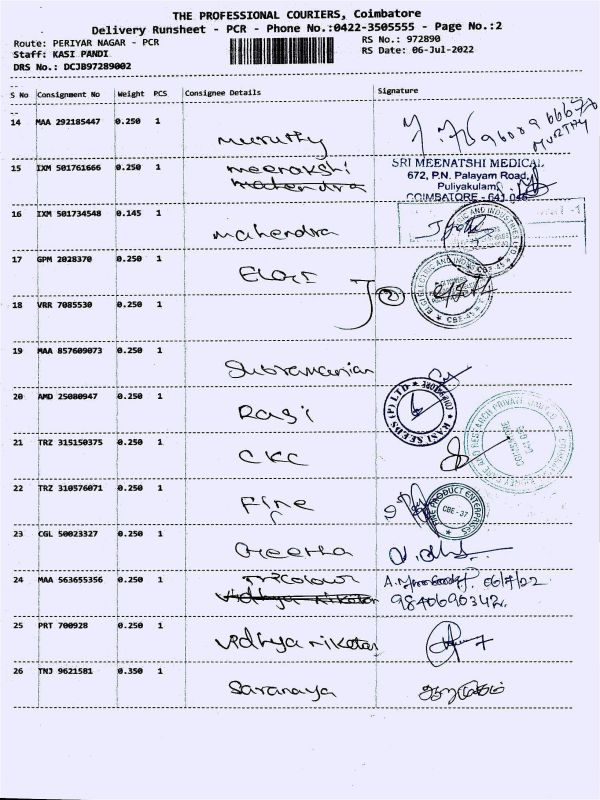 THE PROFESSIONAL COURIERS, Coimbatore
Delivery Runsheet - PCR - Phone No.:0422-3505555 - Page No.:2
Route: PERIYAR NAGAR - PCR
RS No.: 972890
Staff: KASI PANDI
RS Date: 06-Jul-2022
DRS No.: DCJB97289002
S No Consignment No Weight PCS Consignee Details Signature
14 MAA 292185447 0.250 1 Muruthy
MURTHY
15 IXM 501761666 0.250 1 meenakshi
mahendra
SRI MEENATSHI MEDICAL
672, P.N. Palayam Road,
Puliyakulam,
COIMBATORE - 641 045
16 IXM 501734548 0.145 1 mahendra
17 GPM 2028370 0.250 1 ELGI
18 VRR 7085530 0.250 1
19 MAA 857609073 0.250 1 Subramanian
20 AMD 25080947 0.250 1 Rasi
RASI SEEDS (P) LTD
21 TRZ 315150375 0.250 1 CKC
22 TRZ 310576071 0.250 1 Fine
FINE PRODUCT ENTERPRISES
CBE - 37
23 CGL 50023327 0.250 1 Geetha
24 MAA 563655356 0.250 1 Tricolour
vidhya niketan
06/7/22
9840690342
25 PRT 700928 0.250 1 vidhya niketan
26 TNJ 9621581 0.350 1 Saranaya